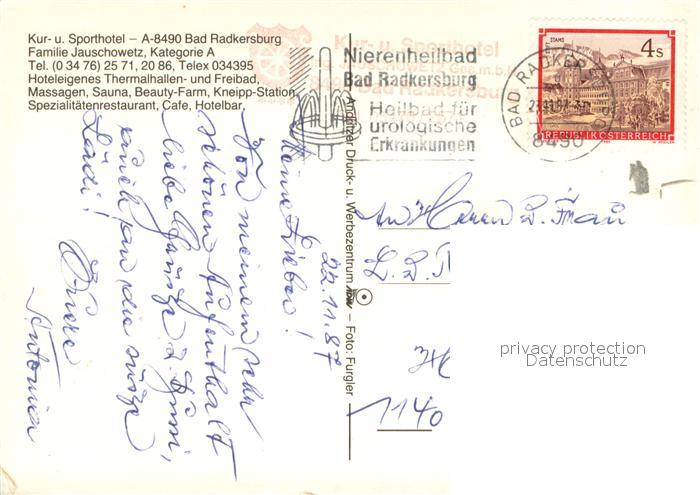 Kur- u. Sporthotel – A-8490 Bad Radkersburg
Familie Jauschowetz, Kategorie A
Tel. (0 34 76) 25 71, 20 86, Telex 034395
Hoteleigenes Thermalhallen- und Freibad,
Massagen, Sauna, Beauty-Farm, Kneipp-Station,
Spezialitätenrestaurant, Cafe, Hotelbar,
Kur- u. Sporthotel
Nierenheilbad
Bad Radkersburg
Heilbad für
urologische
Erkrankungen
BAD RADKERSBURG
8490
STAMS
4 S
REPUBLIK ÖSTERREICH
Andritzer Druck- u. Werbezentrum – Foto: Furgler
22.11.87
Meine Lieben!
Von meinem sehr
schönen Aufenthalt
liebe Grüsse
auch an die süsse
Antonia
An
1140
privacy protection
Datenschutz